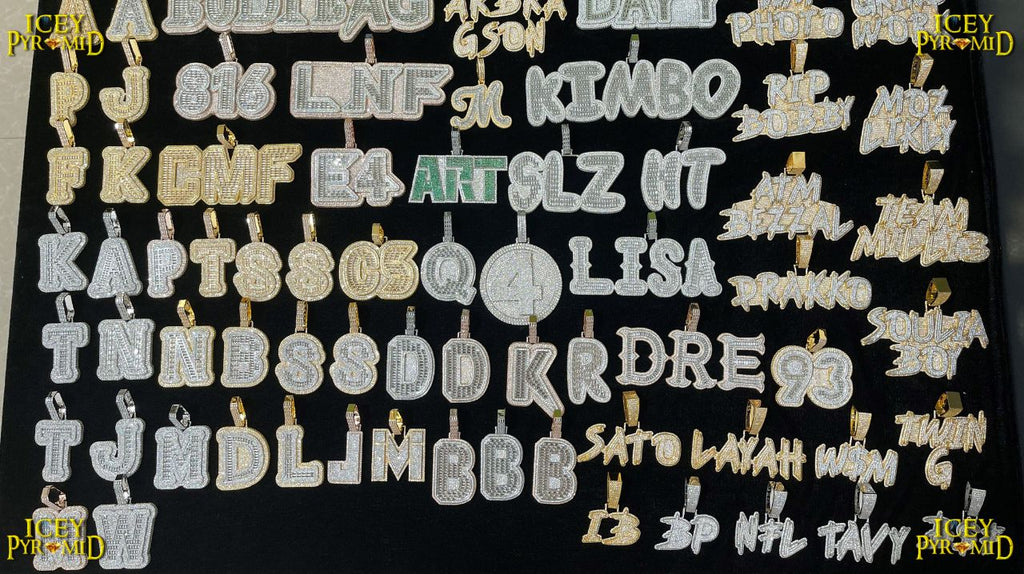 ICEY
PYRAMID
A A BUDI BAG
GSON
DAY 1
PHOTO
ICEY
PYRAMID
P J 816 LNF M KIMBO
RIP
BOBBY
MOZ
F K CMF E4 ART SLZ NT
ATM
BEZZAL
TEAM
K A P T S S 05 Q 4 LISA
DRAKKO
SOULJA
BOY
T N N B S S D D K R DRE 93
T J M D L J M B B B
SATO LAYAH W$M
TWIN
G
IB 3P NFL TAVY
N
ICEY
PYRAMID
ICEY
PYRAMID